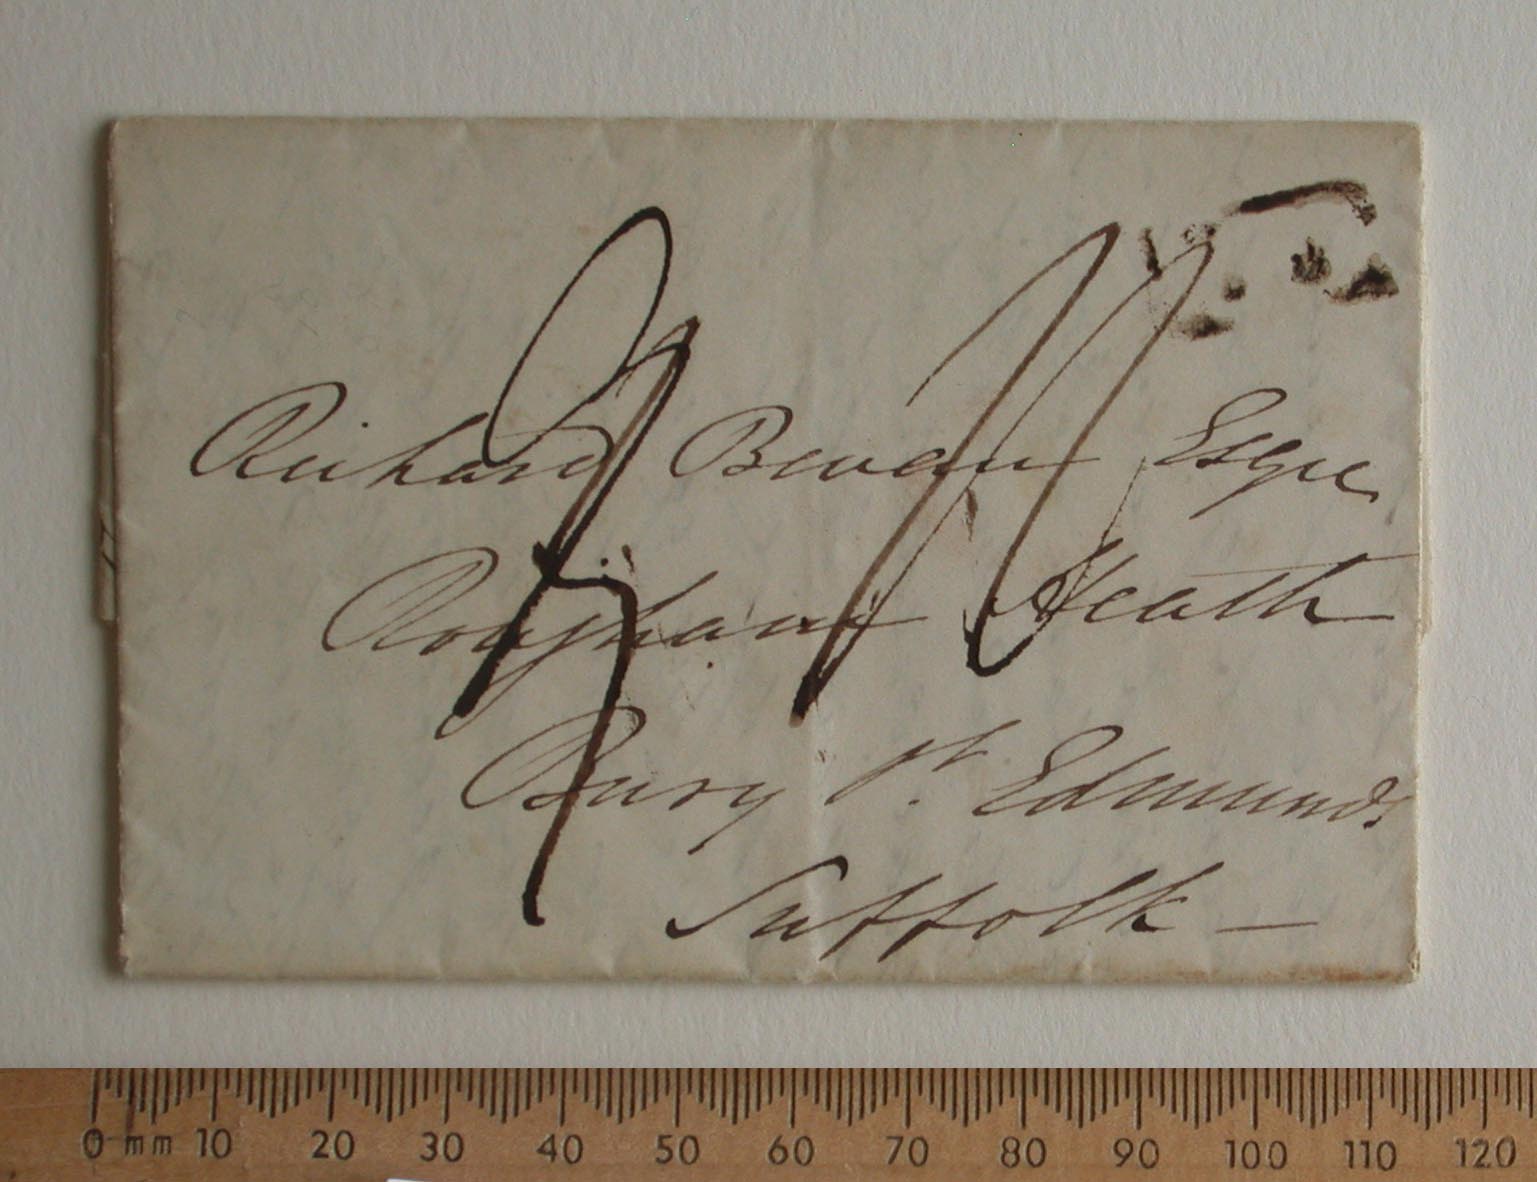 Richard Bevan Esqre
Rougham Heath
Bury St. Edmunds
Suffolk —
0 mm 10 20 30 40 50 60 70 80 90 100 110 120